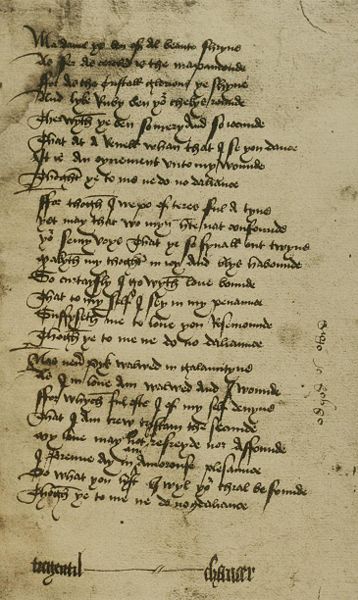 Madame ye ben of al beaute shryne
As fer as cercled is the mapamonde
ffor as the cristall glorious ye shyne
And lyke Ruby ben yor chekys rounde
Therwyth ye ben so mery and so iocunde
That at a Reuell whan that I se you dance
It is an oynement vnto my wounde
Thoght ye to me ne do no daliance
ffor thogh I wepe of teres ful a tyne
yet may that wo myn herte nat confounde
yor semy voys that ye so smal out twyne
Makyth my thoght in ioy and blys habounde
So curtaysly I go wyth loue bounde
That to my self I sey in my penaunce
Suffyseth me to loue you Rosemounde
Thogh ye to me ne do no daliaunce
Nas neuer pyk walwed in galauntyne
As I in loue am walwed and I wounde
ffor whych ful ofte I of my self deuyne
That I am trew tristam the secunde
My loue may not refreyde nor affounde
I brenne ay in an amorouse plesaunce
Do what you lyst I wyl yor thral be founde
Thogh ye to me ne do no daliance
tregentil chaucer